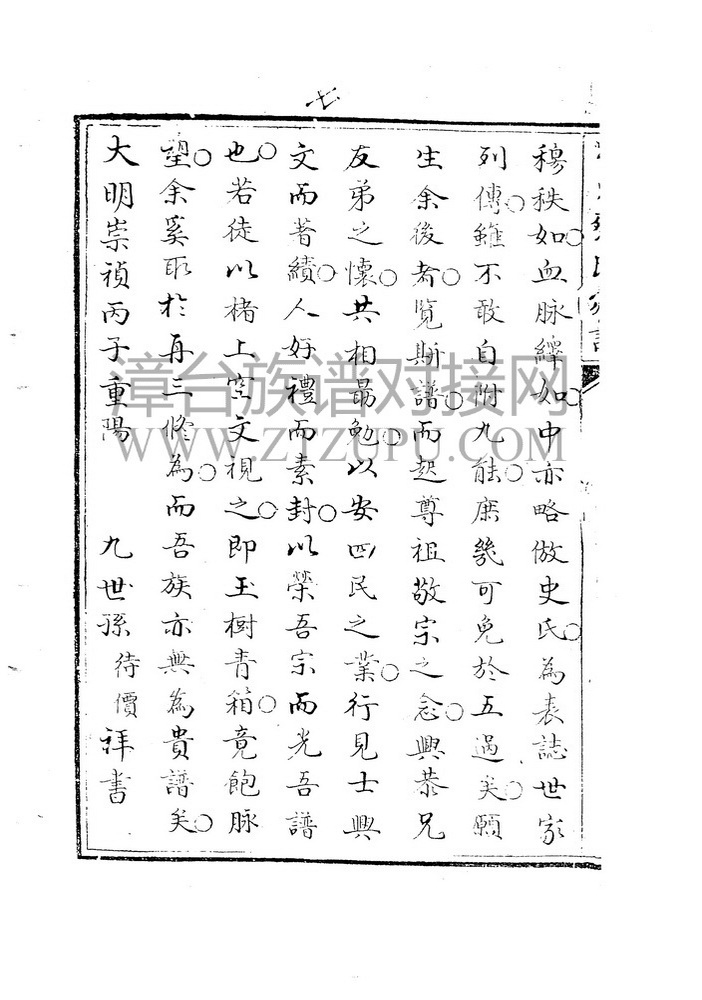 七
穆秩如血脉繹如中亦略倣史氏為表誌世家
列傳雖不敢自附九能庶幾可免於五過矣願
生余後者覧斯譜而起尊祖敬宗之念興恭兄
友弟之懷共相勗勉以安四民之業行見士興
文而著績人好禮而素封以榮吾宗而光吾譜
也若徒以楮上空文視之即玉樹青箱竟飽脉
望余奚取於再三修為而吾族亦無為貴譜矣
大明崇禎丙子重陽 九世孫待價拜書
漳台族谱对接网
WWW.ZTZUPU.COM